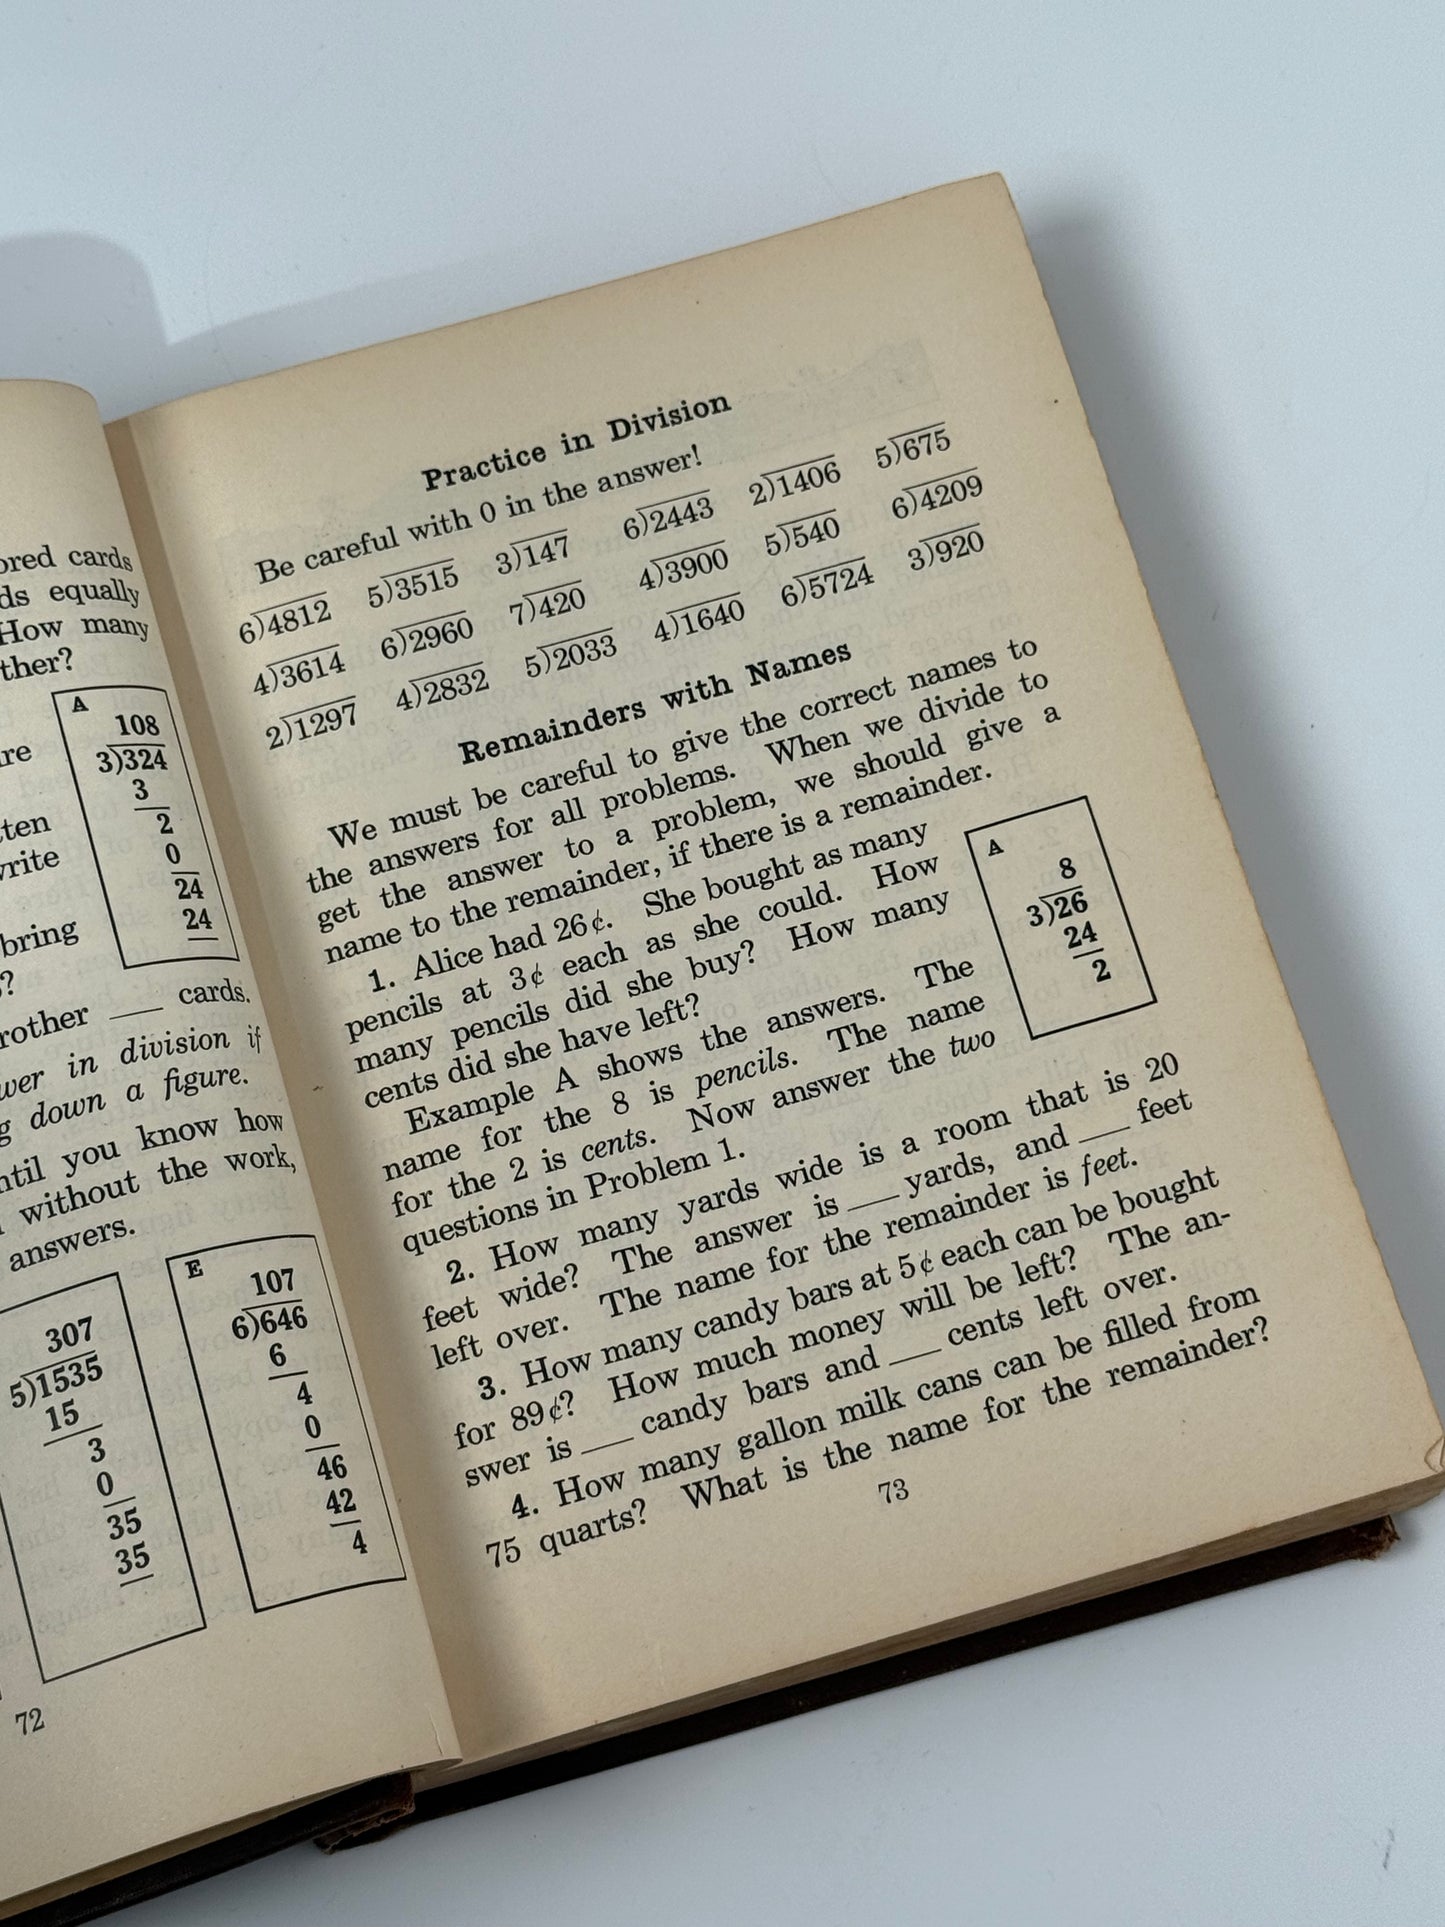 ored cards
ds equally
How many
ther?
re
A
108
3)324
3
2
0
24
24
tten
write
bring
?
rother ___ cards.
wer in division if
g down a figure.
ntil you know how
without the work,
answers.
307
5)1535
15
3
0
35
35
E
107
6)646
6
4
0
46
42
4
72
Practice in Division
Be careful with 0 in the answer!
6)4812 5)3515 3)147 6)2443 2)1406 5)675
4)3614 6)2960 7)420 4)3900 5)540 6)4209
2)1297 4)2832 5)2033 4)1640 6)5724 3)920
Remainders with Names
We must be careful to give the correct names to
the answers for all problems. When we divide to
get the answer to a problem, we should give a
name to the remainder, if there is a remainder.
1. Alice had 26¢. She bought as many
pencils at 3¢ each as she could. How
many pencils did she buy? How many
cents did she have left?
Example A shows the answers. The
name for the 8 is pencils. The name
for the 2 is cents. Now answer the two
questions in Problem 1.
A
8
3)26
24
2
2. How many yards wide is a room that is 20
feet wide? The answer is ___ yards, and ___ feet
left over. The name for the remainder is feet.
3. How many candy bars at 5¢ each can be bought
for 89¢? How much money will be left? The an-
swer is ___ candy bars and ___ cents left over.
4. How many gallon milk cans can be filled from
75 quarts? What is the name for the remainder?
73